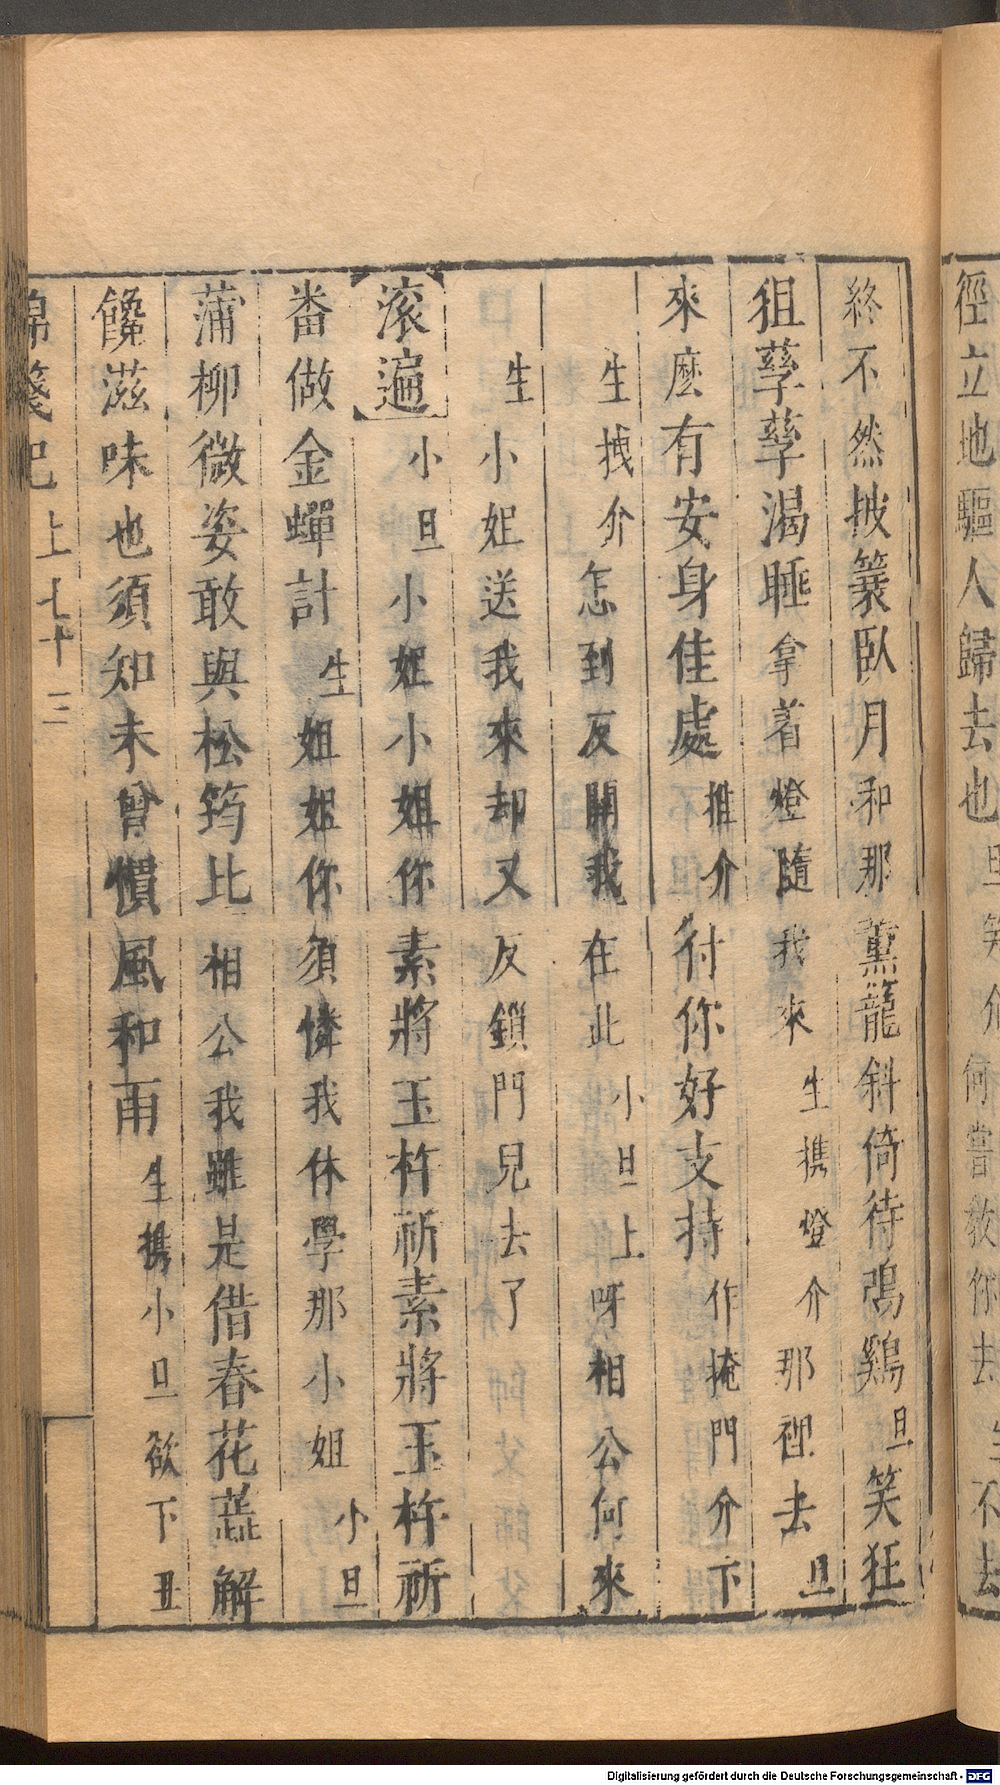 徑立地驅人歸去也旦笑介何嘗教你去生不去
終不然披簑臥月和那薰籠斜倚待鳴鷄旦笑狂
狙孽孽渴睡拿着燈隨我來生携燈介那裡去旦
來麼有安身佳處推介付你好支持作掩門介下
生拽介怎到反關我在此小旦上呀相公何來
生小姐送我來却又反鎖門兒去了
滚遍小旦小姐小姐你素將玉杵祈素將玉杵祈
畨做金蟬計生姐姐你須憐我休學那小姐小旦
蒲柳微姿敢與松筠比相公我雖是借春花蕋解
饞滋味也須知未曾慣風和雨生携小旦欲下丑
錦箋記上七十三
Digitalisierung gefördert durch die Deutsche Forschungsgemeinschaft - DFG